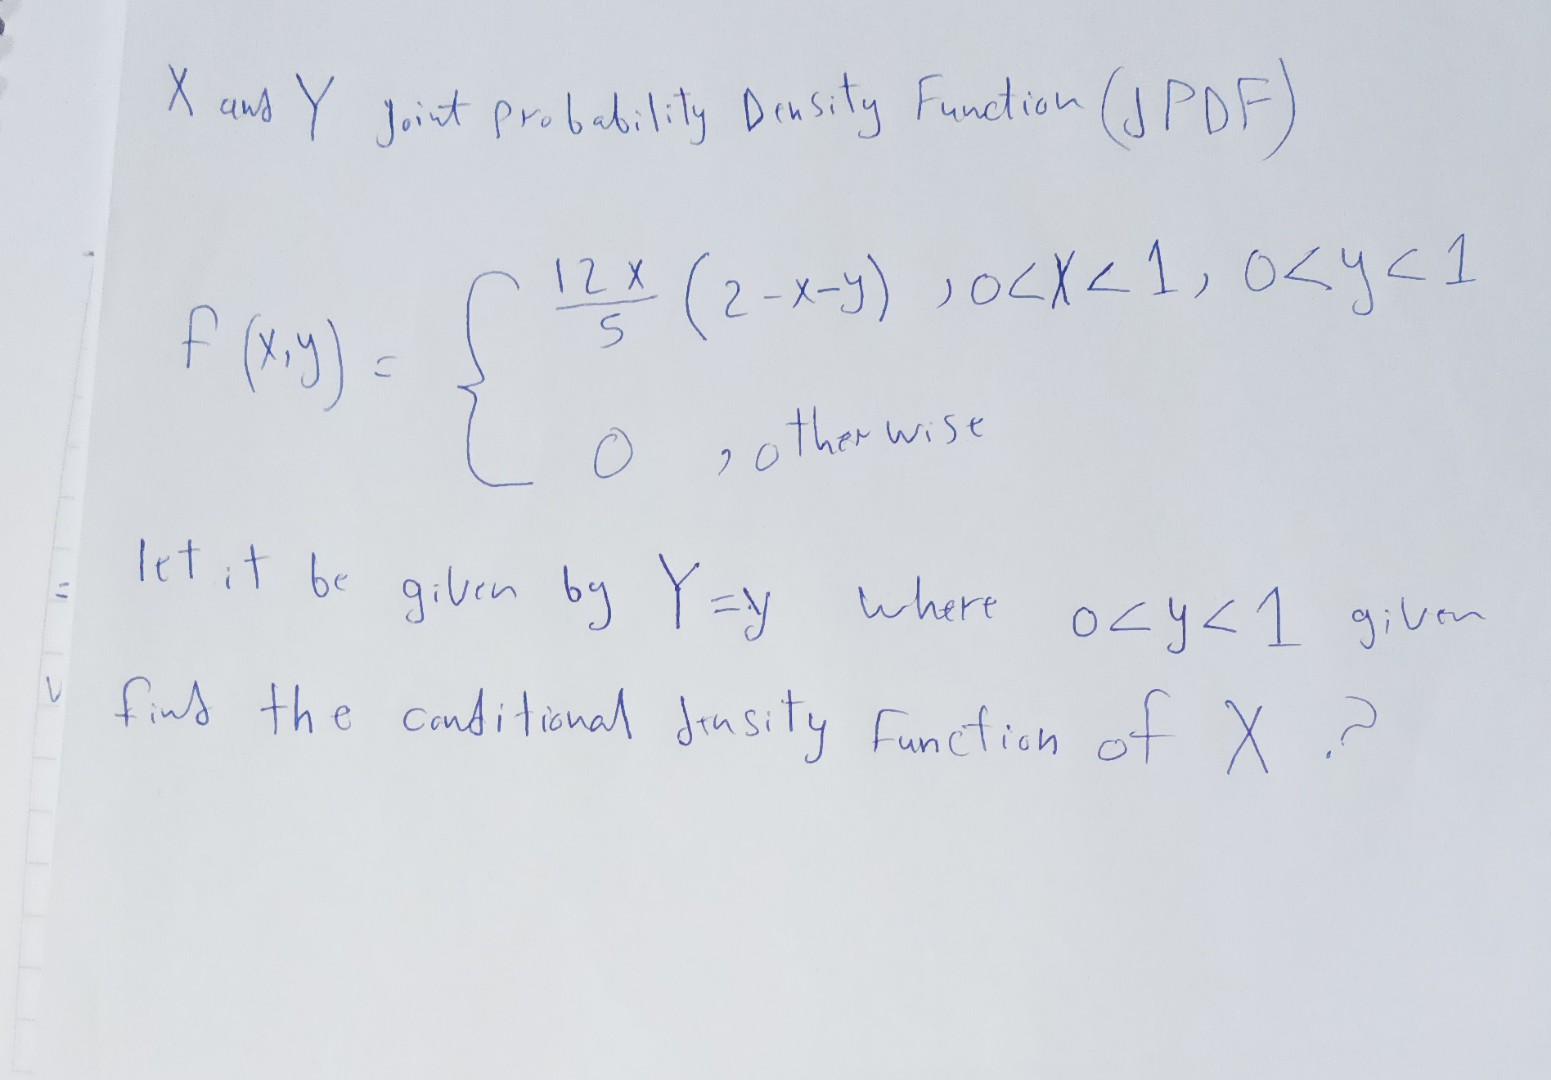 X and Y Joint Probability Density Function (JPDF)
f(x,y) = { 12x/5 (2-x-y) , 0<X<1, 0<y<1
0 , otherwise
let it be given by Y=y where 0<y<1 given
find the conditional density Function of X ?